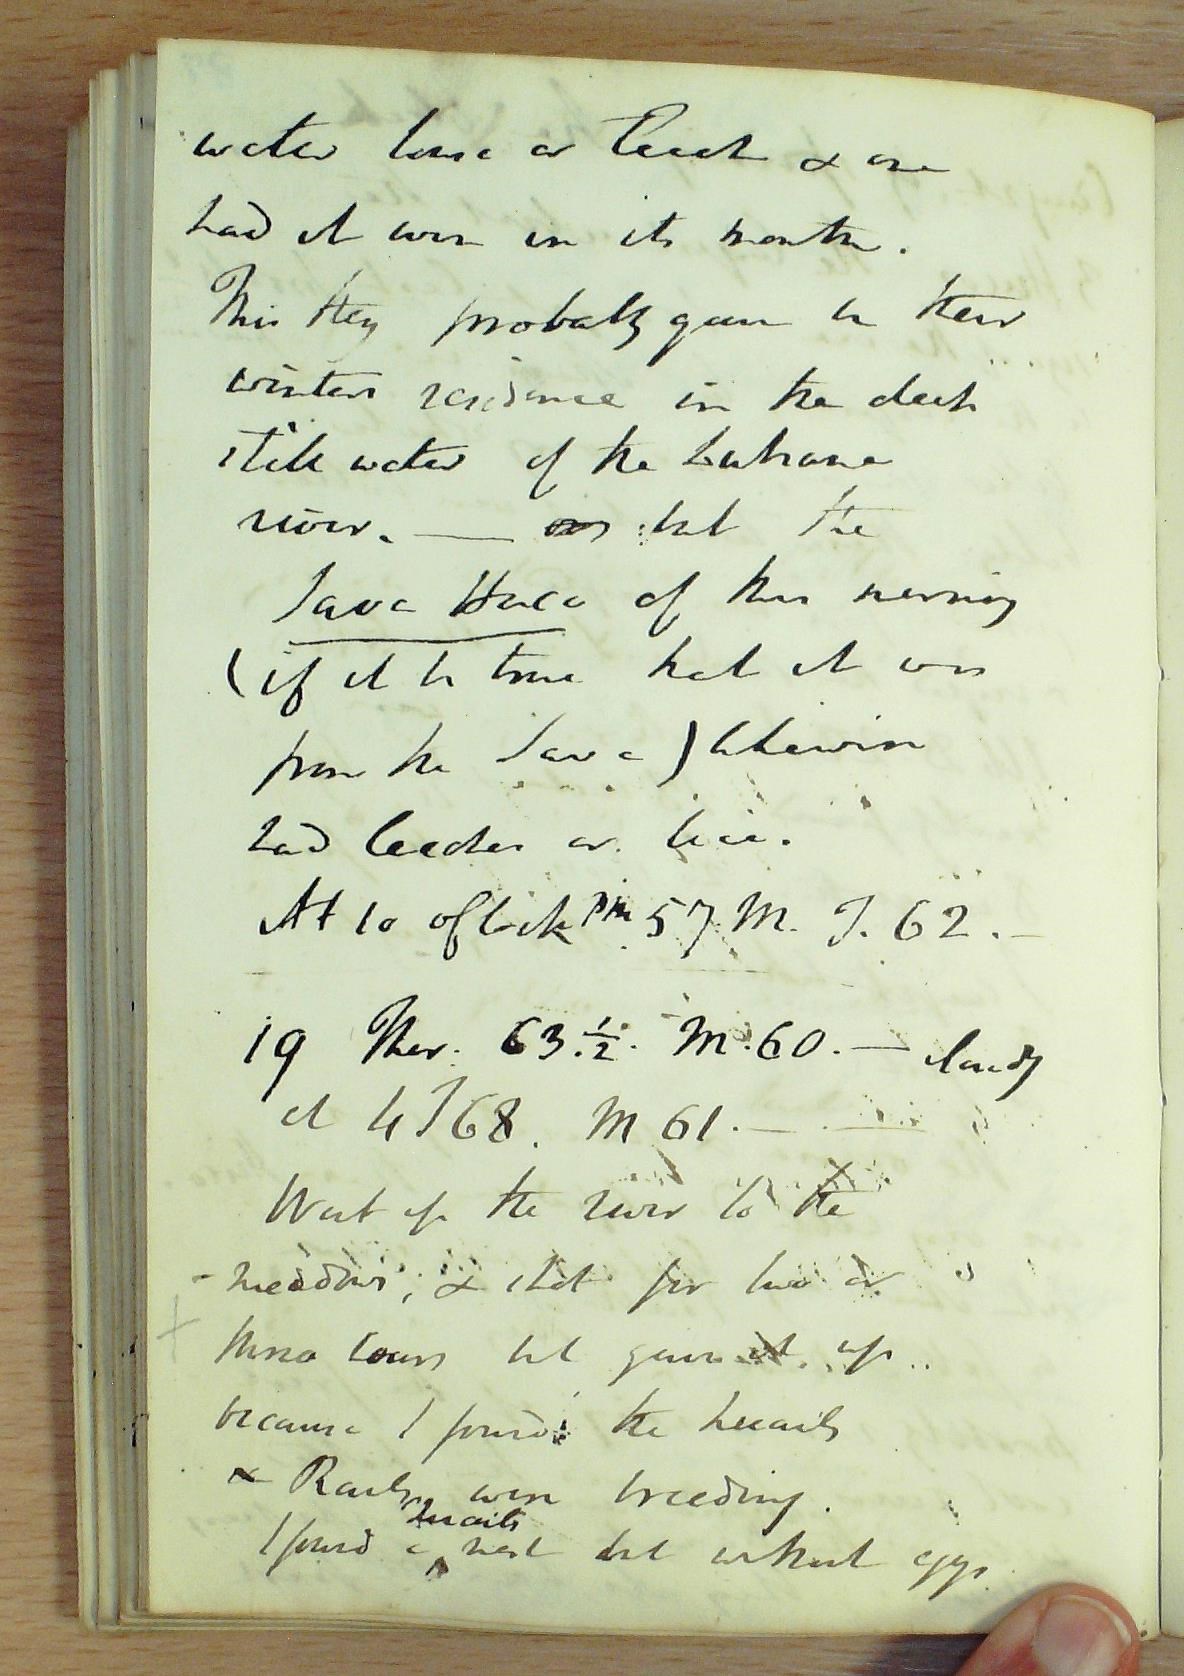 water louse or Leech & one
had it even in its mouth.
This they probably gain in their
winters residence in the deep
still water of the
river. — but the
Sava Huco of this morning
(if it be true that it was
from the Sava) likewise
had leeches or lice.
At 10 oClock PM 57 M. T. 62. —
19 Ther. 63.½. M. 60. — cloudy
at 4 T 68. M 61. —
Went up the river to the
meadows; & shot for two or
three hours but gave it up
because I found the Quails
& Rails were breeding.
I found a Quails nest but without eggs.